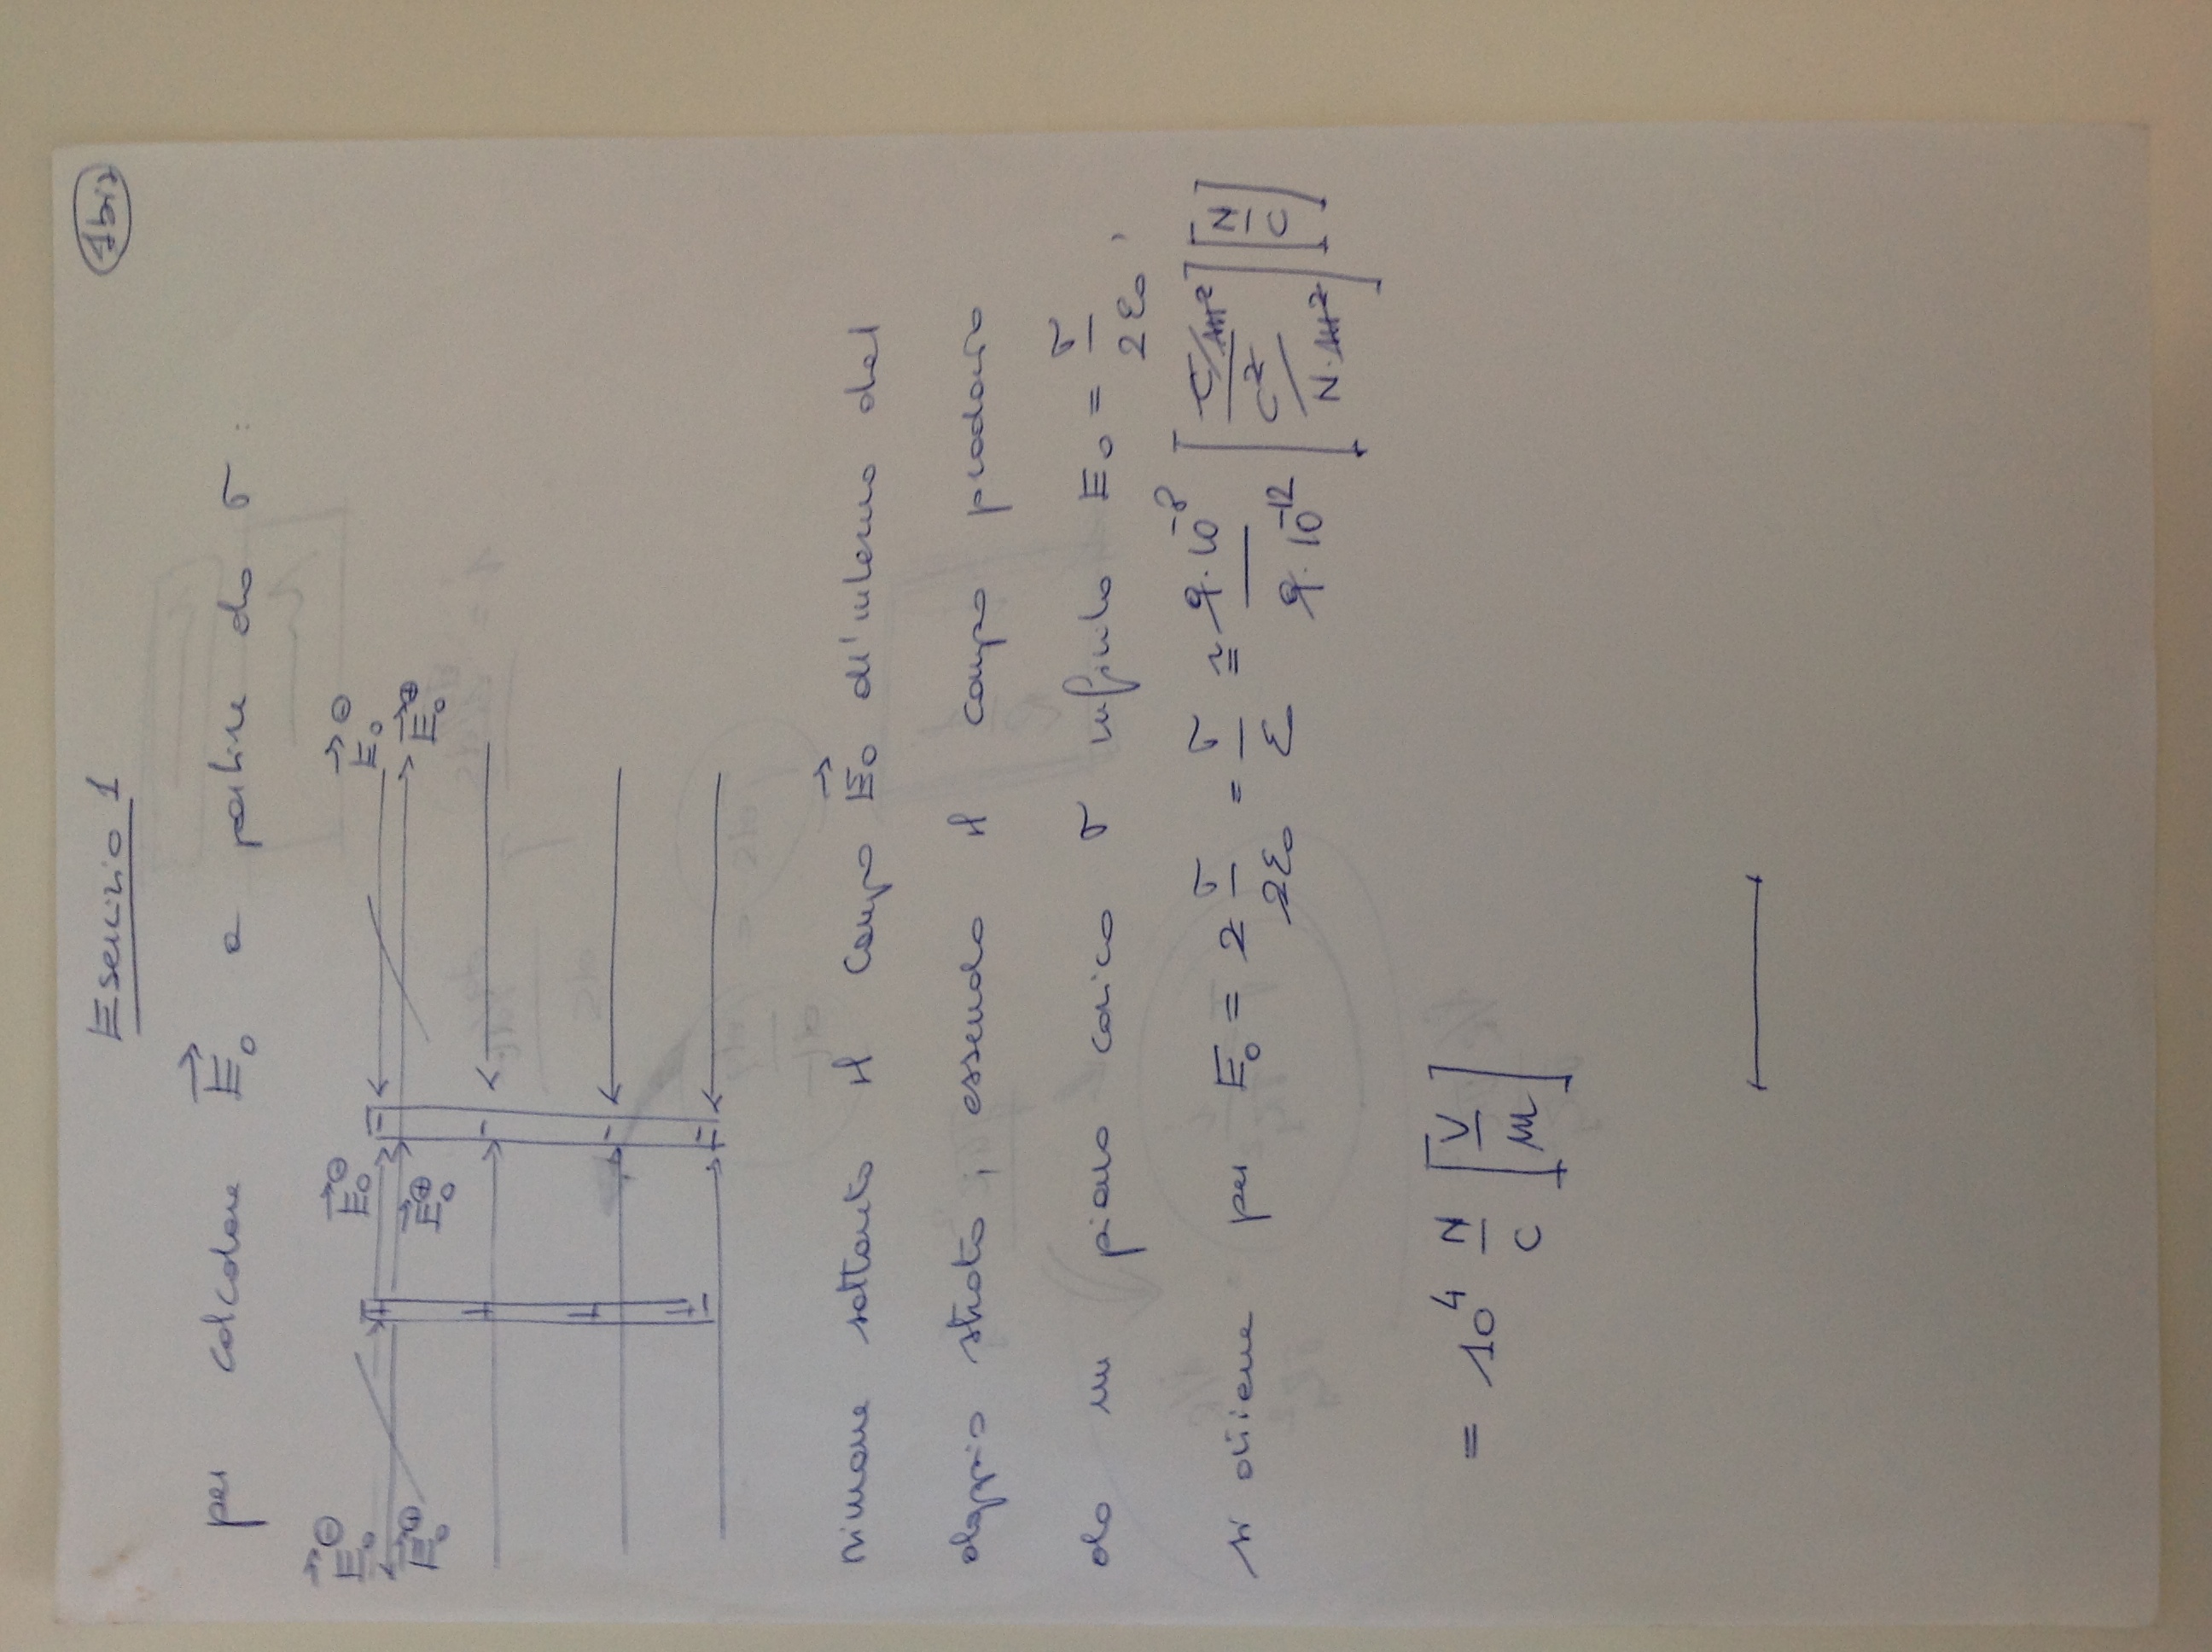 Esercizio 1
1bis
per calcolare E⃗₀ a partire da σ :
E⃗₀⊖ E⃗₀⊖ E⃗₀⊖
E⃗₀⊕ E⃗₀⊕ E⃗₀⊕
+ -
+ -
+ -
+ -
rimane soltanto il campo E⃗₀ all'interno del
doppio strato, essendo il campo prodotto
da un piano carico σ infinito E₀ = σ/2ε₀,
si ottiene per E₀ = 2 σ/2ε₀ = σ/ε₀ ≅ 9·10⁻⁸/9·10⁻¹² [C/m²/C²/N·m²] [N/C]
= 10⁴ N/C [V/m]